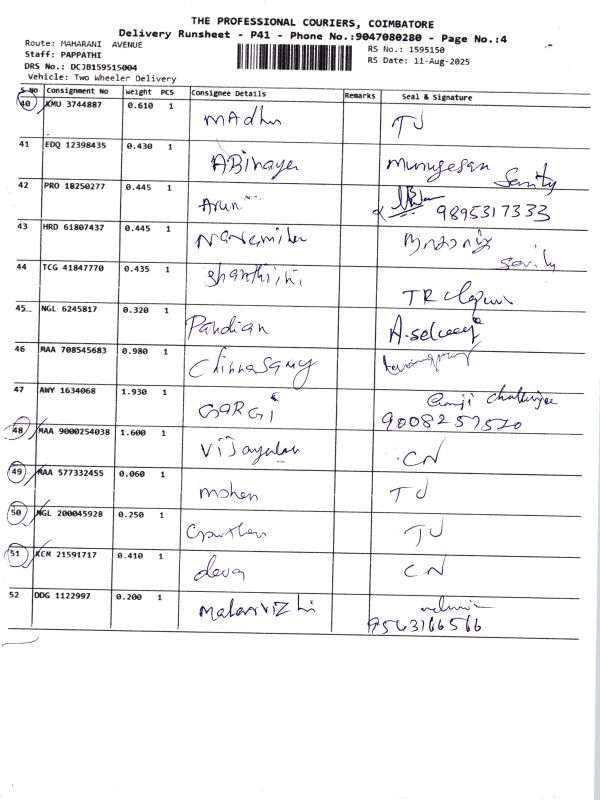 THE PROFESSIONAL COURIERS, COIMBATORE
Delivery Runsheet - P41 - Phone No.:9047080280 - Page No.:4
Route: MAHARANI AVENUE
RS No.: 1595150
Staff: PAPPATHI
RS Date: 11-Aug-2025
DRS No.: DCJB159515004
Vehicle: Two Wheeler Delivery
S No Consignment No Weight PCS Consignee Details Remarks Seal & Signature
40 KMU 3744887 0.610 1 Madhu TJ
41 EDQ 12398435 0.430 1 ABinaya Murugesan
42 PRO 18250277 0.445 1 Arun 9895317333
43 HRD 61807437 0.445 1
44 TCG 41847770 0.435 1 Shanthini TR
45 NGL 6245817 0.320 1 Pandian
46 MAA 708545683 0.980 1 Chinnasamy
47 AWY 1634068 1.930 1 GARGi chatterjee
9008257570
48 MAA 9000254038 1.600 1 Vijayalan CN
49 MAA 577332455 0.060 1 mohen TJ
50 NGL 200045928 0.250 1 Gowtham TJ
51 KCM 21591717 0.410 1 deva CN
52 DDG 1122997 0.200 1 Malarvizhi
9563166566